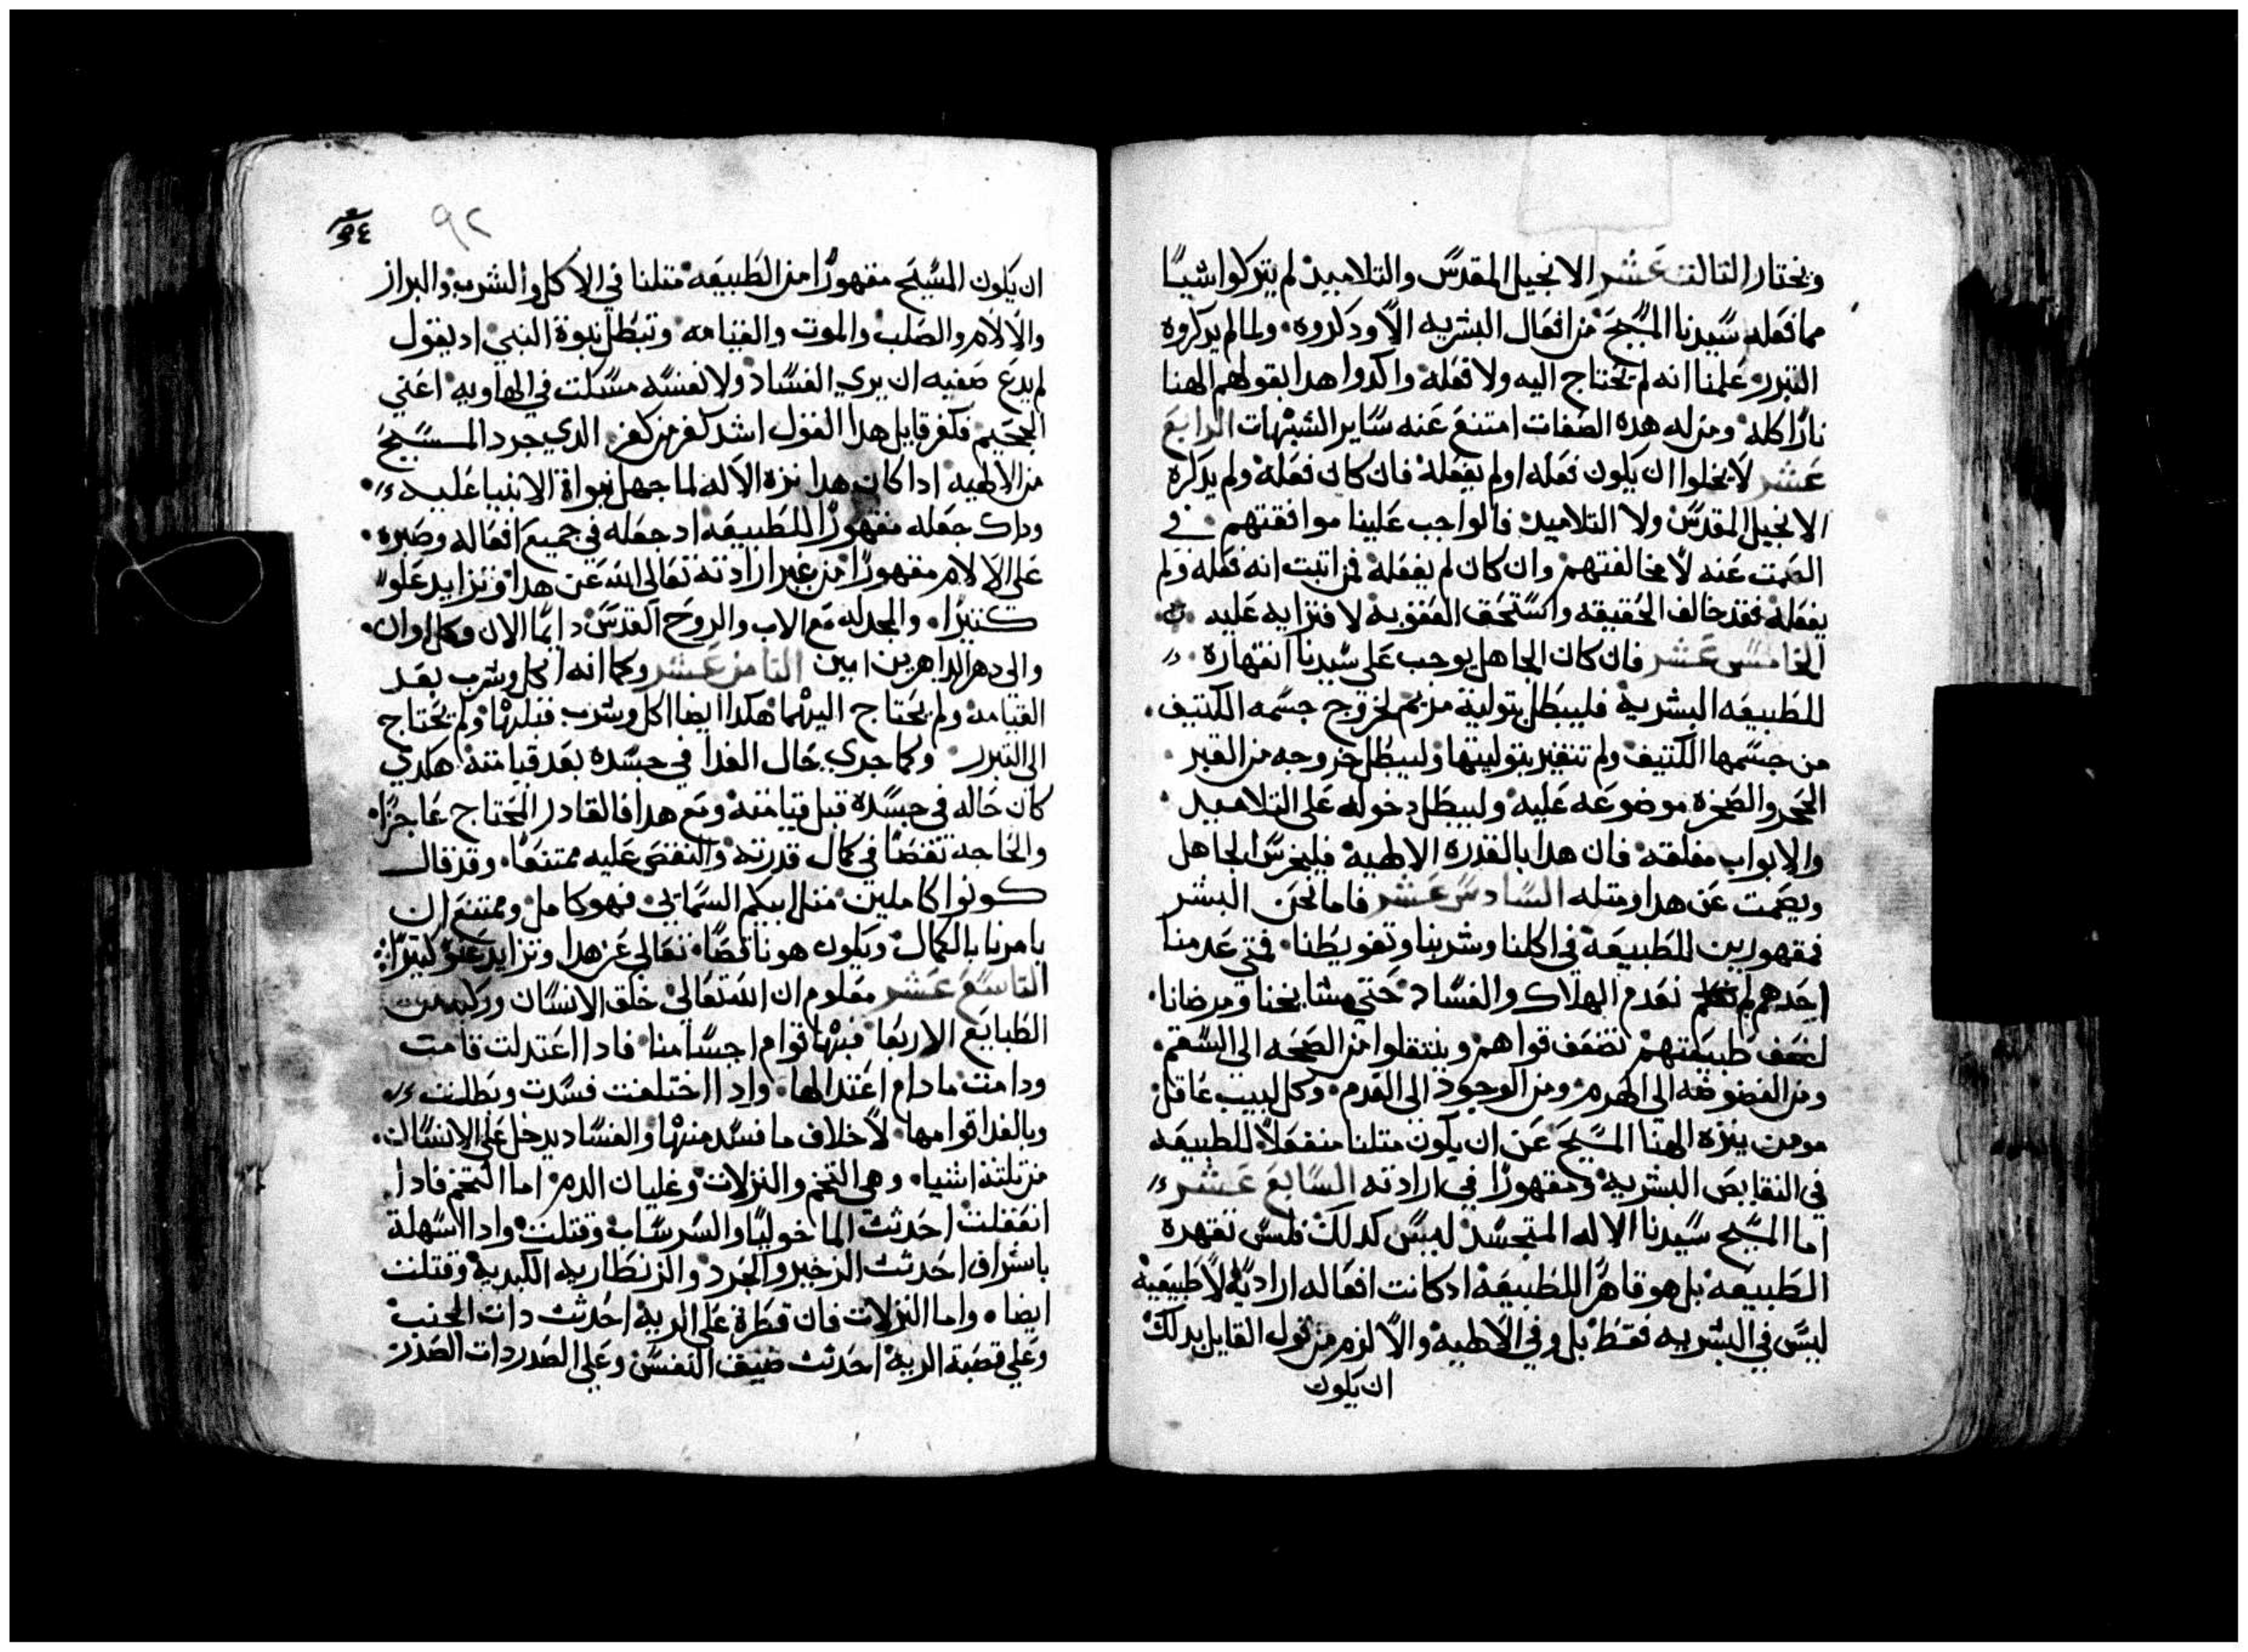 ويختار التالت عشر الانجيل المقدس والتلاميد لم يتركوا شيا
مما فعله سيدنا المسيح من افعال البشريه الا ودكروه ولما لم يدكروه
التبرر علمنا انه لم يحتاج اليه ولا فعله واكدوا هدا بقولهم الهنا
نارا كله ومن له هده الصفات امتنع عنه ساير الشبهات الرابع
عشر لا يخلوا ان يكون فعله او لم يفعله فان كان فعله ولم يدكره
الانجيل المقدس ولا التلاميد فالواجب علينا موافقتهم في
الصمت عنه لا مخالفتهم وان كان لم يفعله فمن اتبت انه فعله ولم
يفعله فقد خالف الحقيقه واستحق العقوبه لافترايه عليه
الخامس عشر فان كان الجاهل يوجب على سيدنا انقهاره
للطبيعه البشريه فليبطل بتولية مريم لخروج جسمه الكتيف
من جسمها الكتيف ولم تتغير بتوليتها وليبطل خروجه من القبر
الحجر والصخره موضوعه عليه وليبطل دخوله على التلاميد
والابواب مغلقه فان هدا بالقدره الالهيه فليخرس الجاهل
ويصمت عن هدا ومتله السادس عشر فاما نحن البشر
فمقهورين للطبيعه في اكلنا وشربنا وتغويطنا فمتي عدمنا
احدهم لم نعدم الهلاك والفساد حتي مشايخنا ومرضانا
لضعف طبيعتهم تضعف قواهم وينتقلوا من الصحه الى السقم
ومن الغضوضه الي الهرم ومن الوجود الى العدم وكل لبيب عاقل
مومن ينزه الهنا المسيح عن ان يكون متلنا منفعلا للطبيعه
في النقايص البشريه ومقهورا في ارادته السابع عشر
اما المسيح سيدنا الاله المتجسد ليس كدلك فليس تقهره
الطبيعه بل هو قاهرا للطبيعه ادكانت افعاله اراديه لا طبيعيه
ليس في البشريه فقط بل وفي الالهيه والا لزم من قول القايل بدلك
ان يكون
٩٢
ان يكون المسيح مقهورا من الطبيعه متلنا في الاكل والشرب والبراز
والالام والصلب والموت والقيامه وتبطل نبوة النبي اد يقول
لم يدع صفيه ان يري الفساد ولا نفسه مسكت في الهاويه اعني
الجحيم فكفر قايل هدا القول اشد كفر من كفر الدي جرد المسيح
من الالهيه اداكان هدا نزه الاله لما جهل نبواة الانبيا عليه
وداك جعله مقهورا للطبيعه اد جعله في جميع افعاله وصبره
على الالام مقهورا من غير ارادته تعالى الله عن هدا وتزايد علوا
كتيرا والمجد له مع الاب والروح القدس دايما الان وكل اوان
والى دهر الداهرين امين التامن عشر وكما انه اكل وشرب بعد
القيامه ولم يحتاج اليهما هكدا ايضا اكل وشرب قبلها ولم يحتاج
الى التبرر وكما جري حال الغدا في جسده بعد قيامته هكدي
كان حاله في جسده قبل قيامته ومع هدا فالقادر المحتاج عاجزا
والحاجه نقصا في كمال قدرته والنقص عليه ممتنعا وقد قال
كونوا كاملين متل ابيكم السماني فهو كامل وممتنع ان
يامرنا بالكمال ويكون هو ناقصا تعالى عن هدا وتزايد علو كبيرا
التاسع عشر معلوم ان الله تعالى خلق الانسان وركبه من
الطبايع الاربعا فبها قوام اجسامنا فادا اعتدلت قامت
ودامت مادام اعتدالها وادا اختلفت فسدت وبطلت
وبالغدا قوامها لاخلاف ما فسد منها والفساد يدخل على الانسان
من تلتة اشيا وهي التخم والنزلات وغليان الدم اما التخم فادا
انعقلت احدثت الماخوليا والسرساب وقتلت وادا اسهلة
باسراف احدثت الزخير والجرد والزنطاريه الكبديه وقتلت
ايضا واما النزلات فان قطرة على الريه احدثت دات الجنب
وعلي قصبة الريه احدثت ضيق النفس وعلي الصدر دات الصدر